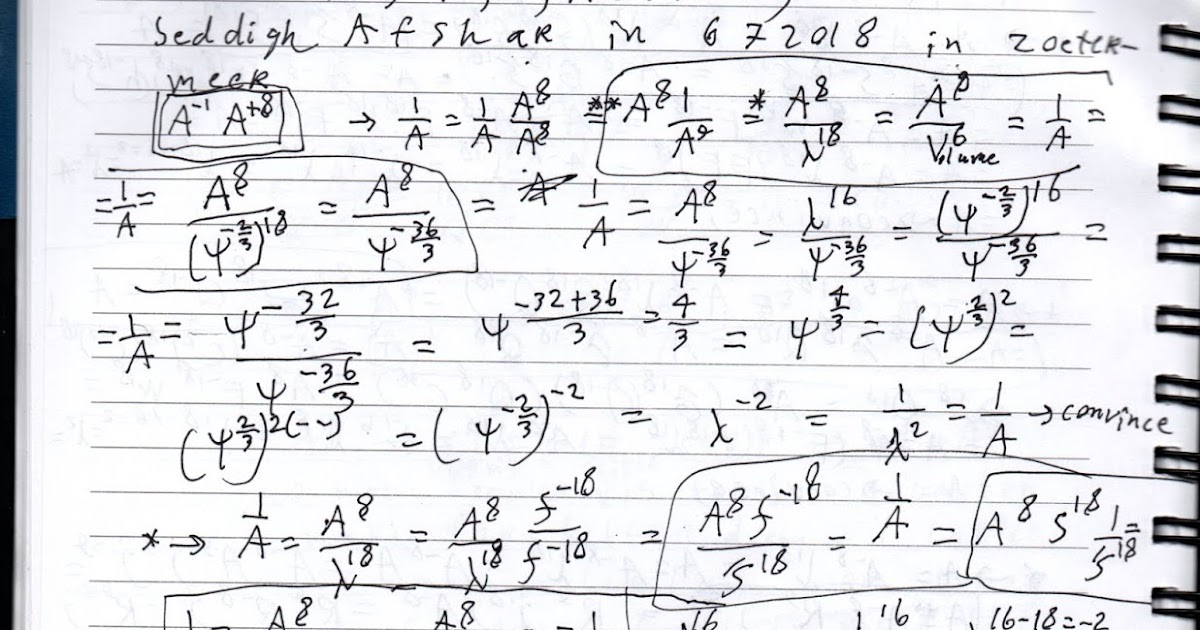 Seddigh Afshar in 6 7 2018 in Zoeter-
meer
A⁻¹ A⁺⁸ → 1/A = 1/A A⁸/A⁸ =** A⁸ 1/A⁹ =* A⁸/λ¹⁸ = A⁸/V⁶ Volume = 1/A =
= 1/A = A⁸/(ψ^(-2/3))¹⁸ = A⁸/ψ^(-36/3) = 1/A = A⁸/ψ^(-36/3) = λ¹⁶/ψ^(-36/3) = (ψ^(-2/3))¹⁶/ψ^(-36/3) =
= 1/A = ψ^(-32/3)/ψ^(-36/3) = ψ^(-32+36)/3 = 4/3 = ψ^(4/3) = (ψ^(2/3))² =
(ψ^(2/3))^2(--) = (ψ^(-2/3))⁻² = λ⁻² = 1/λ² = 1/A → convince
* → 1/A = A⁸/λ¹⁸ = A⁸/λ¹⁸ f⁻¹⁸/f⁻¹⁸ = A⁸ f⁻¹⁸/S¹⁸ = 1/A = A⁸ S¹⁸ 1/S¹⁸ =
A⁸ A⁸ 16 16 16-18=-2